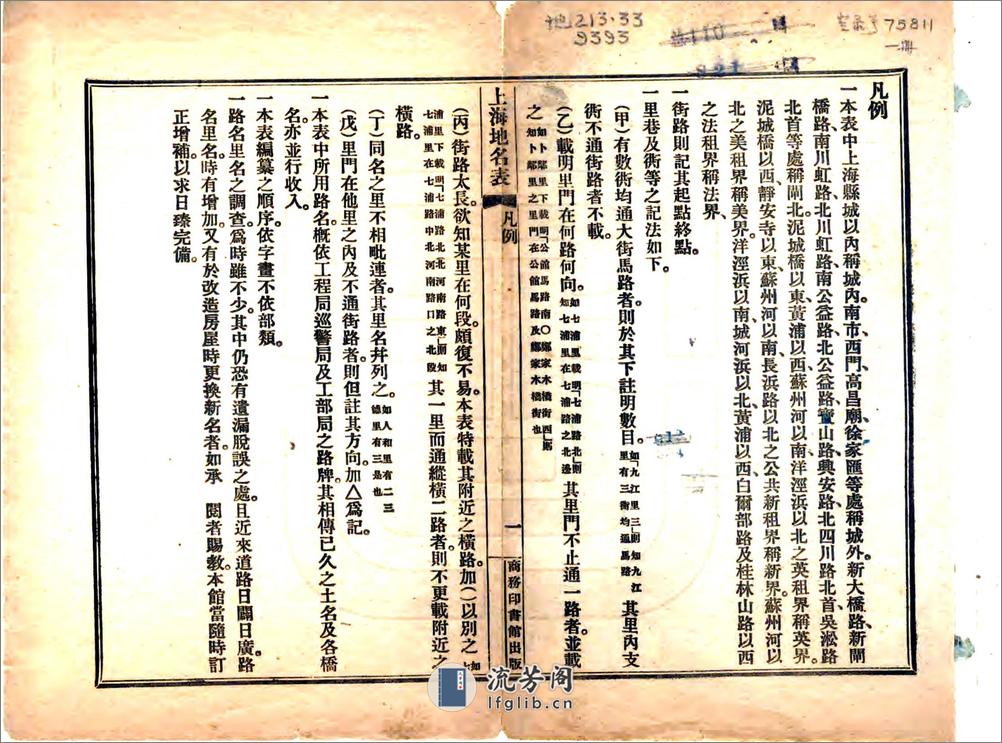 地213·33
9393
110
登录号75811
一冊
凡例
一本表中上海縣城以內稱城內。南市、西門、高昌廟、徐家匯等處稱城外。新大橋路、新閘
橋路、南川虹路、北川虹路、南公益路、北公益路、寶山路、興安路、北四川路北首、吳淞路
北首等處稱閘北。泥城橋以東、黃浦以西、蘇州河以南、洋涇浜以北之英租界稱英界。
泥城橋以西、靜安寺以東、蘇州河以南、長浜路以北之公共新租界稱新界。蘇州河以
北之美租界稱美界。洋涇浜以南、城河浜以北、黃浦以西、白爾部路及桂林山路以西
之法租界稱法界。
一街路則記其起點終點。
一里巷及衖等之記法如下。
(甲)有數衖均通大街馬路者則於其下註明數目。如「九江里三」則知九江里有三衖均通馬路其里內支
衖不通街路者不載。
(乙)載明里門在何路何向。如七浦里載明「七浦路北」則知七浦里在七浦路之北邊其里門不止通一路者並載
之如卜鄰里下載明「公館馬路南〇鄭家木橋街西」卽知卜鄰里之里門在公館馬路及鄭家木橋街也
上海地名表
凡例
一
商務印書館出版
(丙)街路太長。欲知某里在何段頗復不易。本表特載其附近之橫路。加( )以別之如七
浦里下載明「七浦路北北河南路東」則知七浦里在七浦路中北河南路口之北段其一里而通縱橫二路者則不更載附近之
橫路。
(丁)同名之里不相毗連者其里名幷列之。如人和里有二三德里有三是也
(戊)里門在他里之內及不通街路者則但註其方向。加△爲記。
一本表中所用路名。槪依工程局巡警局及工部局之路牌。其相傳已久之土名及各橋
名亦並行收入。
一本表編纂之順序。依字畫不依部類。
一路名里名之調查。爲時雖不少。其中仍恐有遺漏脫誤之處。且近來道路日闢日廣。路
名里名時有增加。又有於改造房屋時更換新名者。如承　閱者賜敎。本館當隨時訂
正增補。以求日臻完備。
流芳阁
lfglib.cn